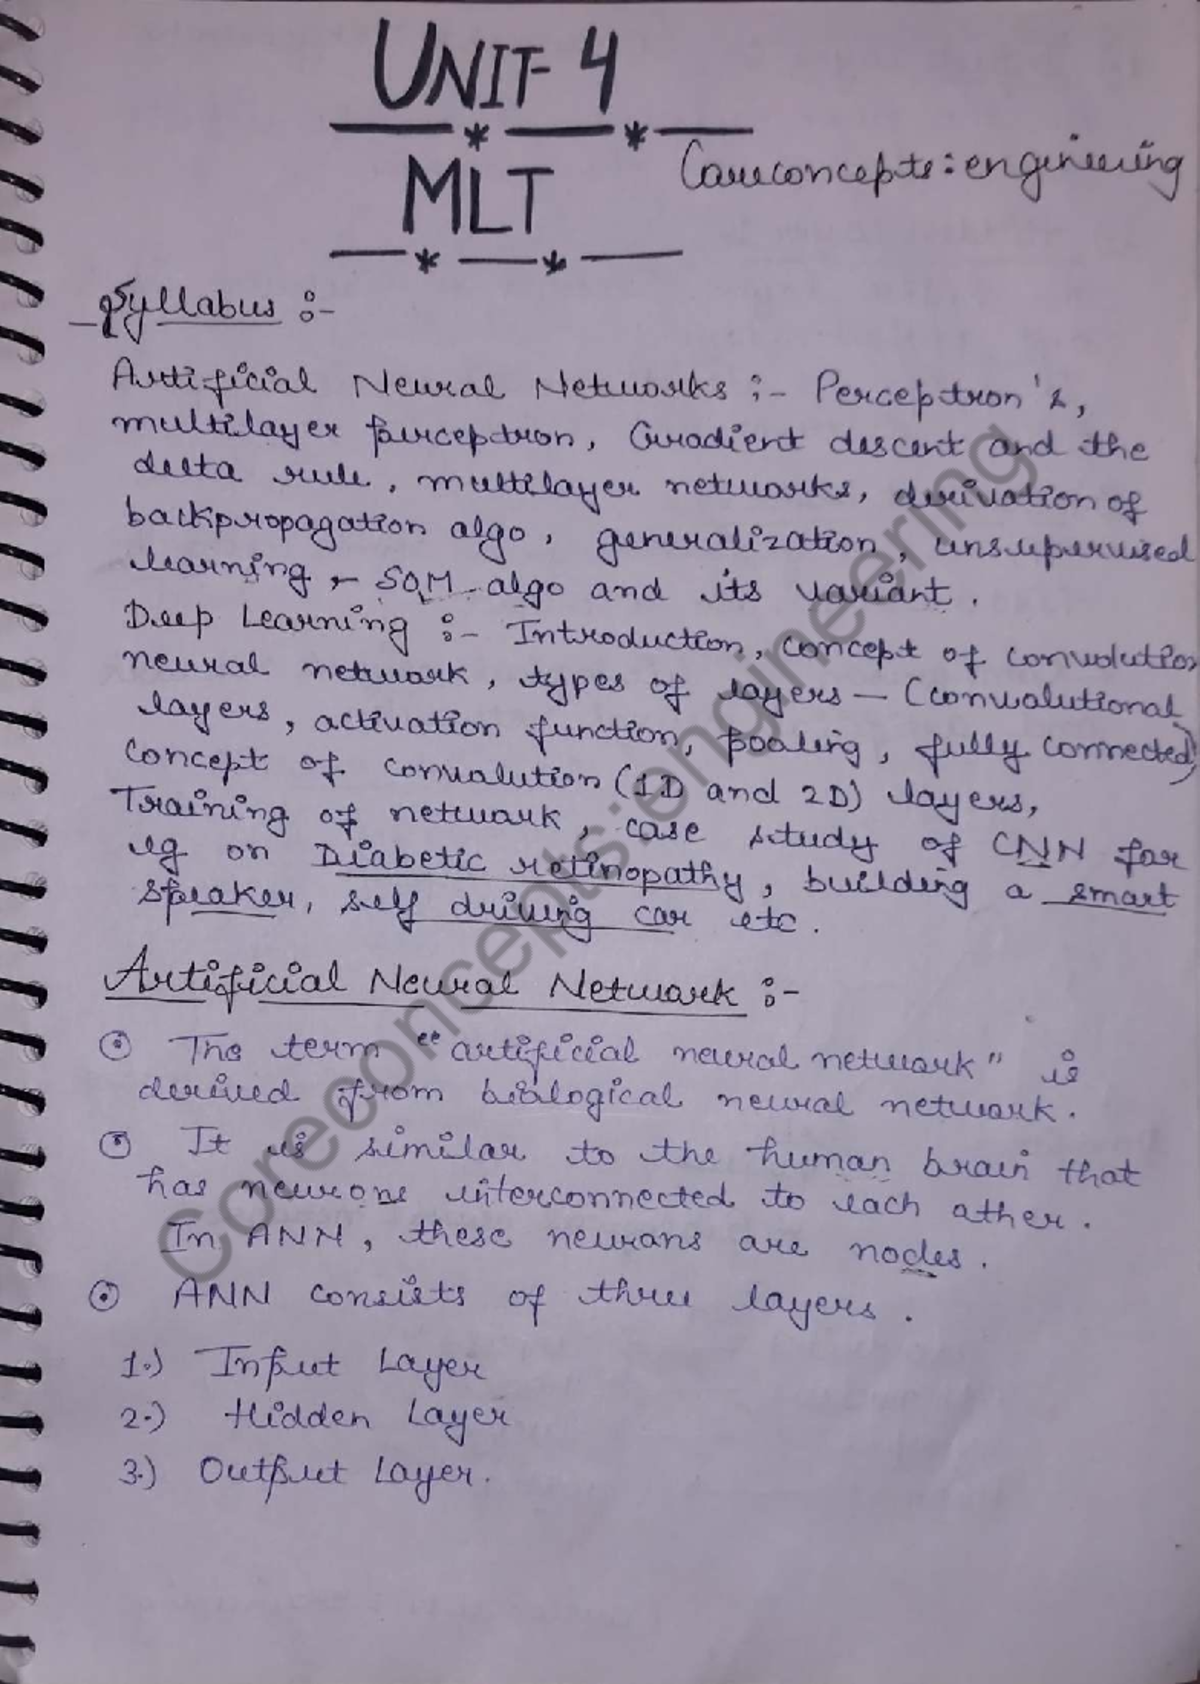 UNIT-4
MLT
Coreconcepts:engineering
Syllabus :-
Artificial Neural Networks :- Perceptron's,
multilayer perceptron, Gradient descent and the
delta rule, multilayer networks, derivation of
backpropagation algo, generalization, unsupervised
learning - SOM algo and its variant.
Deep Learning :- Introduction, concept of convolution
neural network, types of layers - (convolutional
layers, activation function, pooling, fully connected)
concept of convolution (1D and 2D) layers,
Training of network, case study of CNN for
eg on Diabetic retinopathy, building a smart
speaker, self driving car etc.
Artificial Neural Network :-
The term "artificial neural network" is
derived from biological neural network.
It is similar to the human brain that
has neurons interconnected to each other.
In ANN, these neurons are nodes.
ANN consists of three layers.
1.) Input Layer
2.) Hidden Layer
3.) Output Layer.
Coreconcepts:engineering